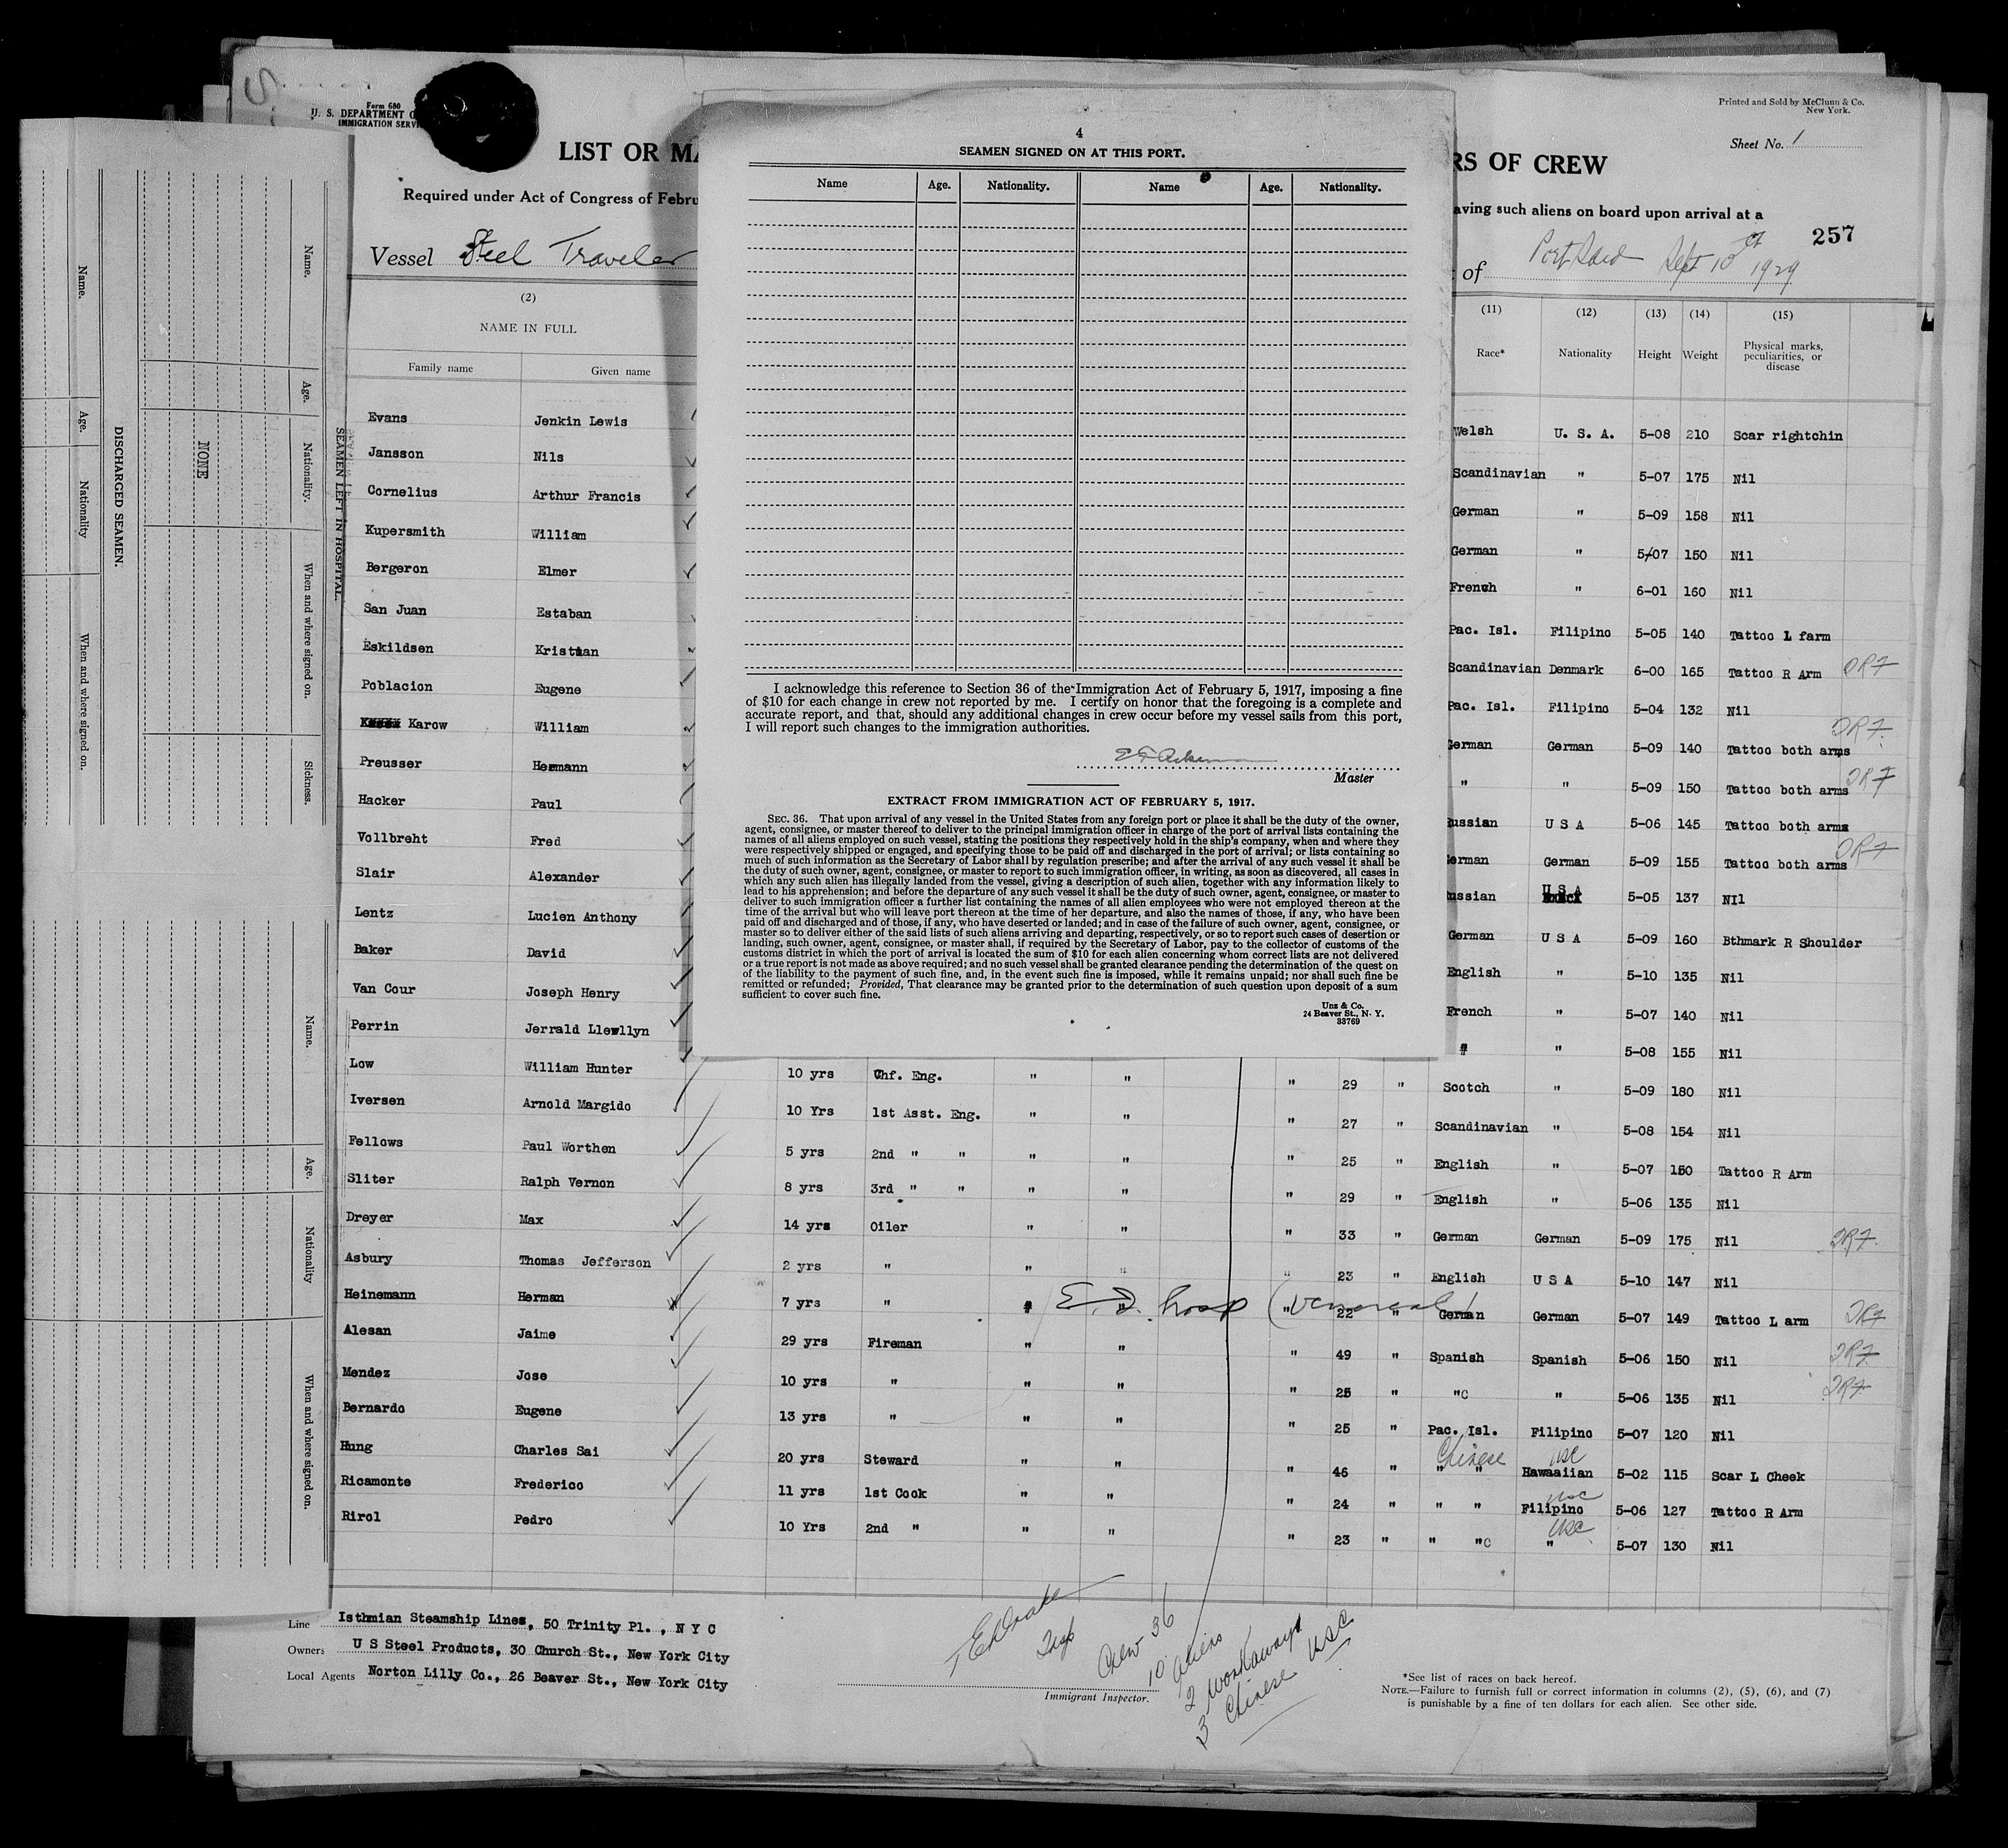 Form 680
U. S. DEPARTMENT O
IMMIGRATION SERV
Printed and Sold by McClunn & Co.
New York.
Sheet No. 1
LIST OR MA
RS OF CREW
Required under Act of Congress of Febru
aving such aliens on board upon arrival at a
257
Vessel Steel Traveler
of Port Said Sept 10 1929
(2)
NAME IN FULL
Family name Given name
(11) (12) (13) (14) (15)
Race* Nationality Height Weight Physical marks, peculiarities, or disease
Evans Jenkin Lewis Welsh U. S. A. 5-08 210 Scar rightchin
Jansson Nils Scandinavian " 5-07 175 Nil
Cornelius Arthur Francis German " 5-09 158 Nil
Kupersmith William German " 5/07 150 Nil
Bergeron Elmer French " 6-01 160 Nil
San Juan Estaban Pac. Isl. Filipino 5-05 140 Tattoo L farm
Eskildsen Kristian Scandinavian Denmark 6-00 165 Tattoo R Arm
Poblacion Eugene Pac. Isl. Filipino 5-04 132 Nil
Karow William German German 5-09 140 Tattoo both arms
Preusser Hermann " " 5-09 150 Tattoo both arms
Hacker Paul ussian U S A 5-06 145 Tattoo both arms
Vollbreht Fred erman German 5-09 155 Tattoo both arms
Slair Alexander ussian U S A 5-05 137 NIl
Lentz Lucien Anthony German U S A 5-09 160 Bthmark R Shoulder
Baker David English " 5-10 135 Nil
Van Cour Joseph Henry French " 5-07 140 Nil
Perrin Jerrald Llewllyn " " 5-08 155 Nil
Low William Hunter 10 yrs Chf. Eng. " " " 29 " Scotch " 5-09 180 Nil
Iversen Arnold Margido 10 Yrs 1st Asst. Eng. " " " 27 " Scandinavian " 5-08 154 Nil
Fellows Paul Worthen 5 yrs 2nd " " " " " 25 " English " 5-07 150 Tattoo R Arm
Sliter Ralph Vernon 8 yrs 3rd " " " " " 29 " English " 5-06 135 Nil
Dreyer Max 14 yrs Oiler " " " 33 " German German 5-09 175 Nil
Asbury Thomas Jefferson 2 yrs " " " " 23 " English U S A 5-10 147 Nil
Heinemann Herman 7 yrs " " " " 22 " German German 5-07 149 Tattoo L arm
hosp (venereal)
Alesan Jaime 29 yrs Fireman " " " 49 " Spanish Spanish 5-06 150 Nil
Mendez Jose 10 yrs " " " " 25 " "C " 5-06 135 Nil
Bernardo Eugene 13 yrs " " " " 25 " Pac. Isl. Filipino 5-07 120 Nil
Hung Charles Sai 20 yrs Steward " " " 46 " Chinese " " USC Hawaaiian 5-02 115 Scar L Cheek
Ricamonte Frederico 11 yrs 1st Cook " " " 24 " " " USC Filipino 5-06 127 Tattoo R Arm
Rirol Pedro 10 Yrs 2nd " " " " 23 " " "C USC " 5-07 130 Nil
Line Isthmian Steamship Lines, 50 Trinity Pl., N Y C
Owners U S Steel Products, 30 Church St., New York City
Local Agents Norton Lilly Co., 26 Beaver St., New York City
Immigrant Inspector.
Crew 36
10 aliens
2 Workaways
3 Chinese USC
*See list of races on back hereof.
NOTE.—Failure to furnish full or correct information in columns (2), (5), (6), and (7)
is punishable by a fine of ten dollars for each alien. See other side.
4
SEAMEN SIGNED ON AT THIS PORT.
Name Age. Nationality. Name Age. Nationality.
I acknowledge this reference to Section 36 of the Immigration Act of February 5, 1917, imposing a fine
of $10 for each change in crew not reported by me. I certify on honor that the foregoing is a complete and
accurate report, and that, should any additional changes in crew occur before my vessel sails from this port,
I will report such changes to the immigration authorities.
Master
EXTRACT FROM IMMIGRATION ACT OF FEBRUARY 5, 1917.
SEC. 36. That upon arrival of any vessel in the United States from any foreign port or place it shall be the duty of the owner,
agent, consignee, or master thereof to deliver to the principal immigration officer in charge of the port of arrival lists containing the
names of all aliens employed on such vessel, stating the positions they respectively hold in the ship's company, when and where they
were respectively shipped or engaged, and specifying those to be paid off and discharged in the port of arrival; or lists containing so
much of such information as the Secretary of Labor shall by regulation prescribe; and after the arrival of any such vessel it shall be
the duty of such owner, agent, consignee, or master to report to such immigration officer, in writing, as soon as discovered, all cases in
which any such alien has illegally landed from the vessel, giving a description of such alien, together with any information likely to
lead to his apprehension; and before the departure of any such vessel it shall be the duty of such owner, agent, consignee, or master to
deliver to such immigration officer a further list containing the names of all alien employees who were not employed thereon at the
time of the arrival but who will leave port thereon at the time of her departure, and also the names of those, if any, who have been
paid off and discharged and of those, if any, who have deserted or landed; and in case of the failure of such owner, agent, consignee, or
master so to deliver either of the said lists of such aliens arriving and departing, respectively, or so to report such cases of desertion or
landing, such owner, agent, consignee, or master shall, if required by the Secretary of Labor, pay to the collector of customs of the
customs district in which the port of arrival is located the sum of $10 for each alien concerning whom correct lists are not delivered
or a true report is not made as above required; and no such vessel shall be granted clearance pending the determination of the quest on
of the liability to the payment of such fine, and, in the event such fine is imposed, while it remains unpaid; nor shall such fine be
remitted or refunded; Provided, That clearance may be granted prior to the determination of such question upon deposit of a sum
sufficient to cover such fine.
Unz & Co.
24 Beaver St., N. Y.
33769
SEAMEN LEFT IN HOSPITAL.
Name. Age. Nationality. When and where signed on. Sickness.
NONE
DISCHARGED SEAMEN.
Name. Age. Nationality When and where signed on.
Name. Age. Nationality When and where signed on.